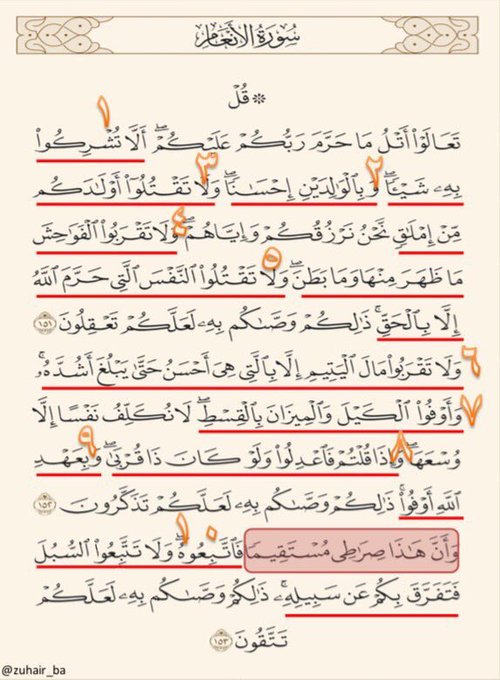 سُورَةُ الْأَنْعَامِ
۞ قُلْ
١
تَعَالَوْا۟ أَتْلُ مَا حَرَّمَ رَبُّكُمْ عَلَيْكُمْ ۖ أَلَّا تُشْرِكُوا۟
٣ ٢
بِهِۦ شَيْـًٔا ۖ وَبِالْوَٰلِدَيْنِ إِحْسَـٰنًا ۖ وَلَا تَقْتُلُوٓا۟ أَوْلَـٰدَكُم
٤
مِّنْ إِمْلَـٰقٍ ۖ نَّحْنُ نَرْزُقُكُمْ وَإِيَّاهُمْ ۖ وَلَا تَقْرَبُوا۟ الْفَوَٰحِشَ
٥
مَا ظَهَرَ مِنْهَا وَمَا بَطَنَ ۖ وَلَا تَقْتُلُوا۟ النَّفْسَ الَّتِى حَرَّمَ اللَّهُ
إِلَّا بِالْحَقِّ ۚ ذَٰلِكُمْ وَصَّىٰكُم بِهِۦ لَعَلَّكُمْ تَعْقِلُونَ ١٥١
٦ وَلَا تَقْرَبُوا۟ مَالَ الْيَتِيمِ إِلَّا بِالَّتِى هِىَ أَحْسَنُ حَتَّىٰ يَبْلُغَ أَشُدَّهُۥ ۖ
٧ وَأَوْفُوا۟ الْكَيْلَ وَالْمِيزَانَ بِالْقِسْطِ ۖ لَا نُكَلِّفُ نَفْسًا إِلَّا
٨ ٩
وُسْعَهَا ۖ وَإِذَا قُلْتُمْ فَاعْدِلُوا۟ وَلَوْ كَانَ ذَا قُرْبَىٰ ۖ وَبِعَهْدِ
اللَّهِ أَوْفُوا۟ ۚ ذَٰلِكُمْ وَصَّىٰكُم بِهِۦ لَعَلَّكُمْ تَذَكَّرُونَ ١٥٢
١٠
وَأَنَّ هَـٰذَا صِرَٰطِى مُسْتَقِيمًا فَاتَّبِعُوهُ ۖ وَلَا تَتَّبِعُوا۟ السُّبُلَ
فَتَفَرَّقَ بِكُمْ عَن سَبِيلِهِۦ ۚ ذَٰلِكُمْ وَصَّىٰكُم بِهِۦ لَعَلَّكُمْ
تَتَّقُونَ ١٥٣
@zuhair_ba